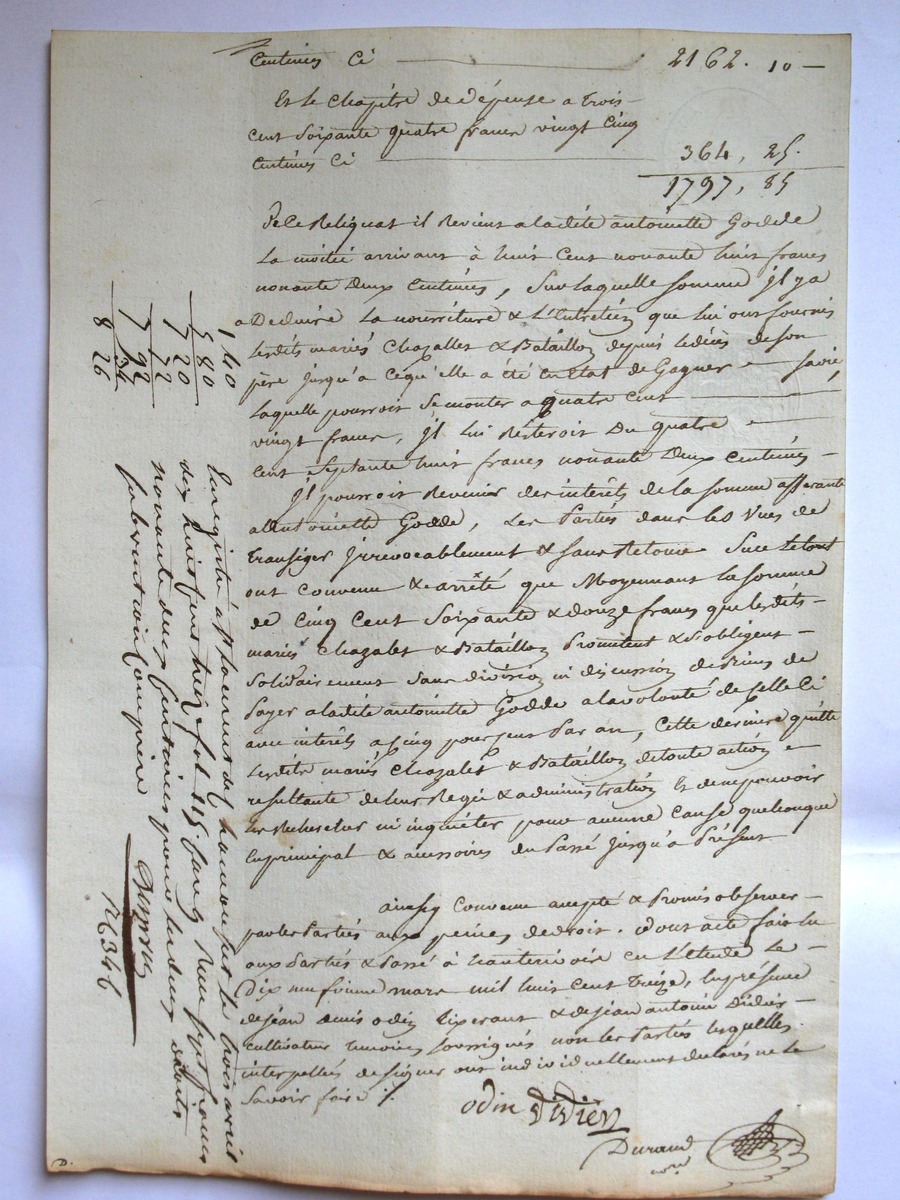 Centimes Ci 2162. 10
Et le Chapitre de dépense a trois
cent Soixante quatre francs vingt Cinq
Centimes Ci 364, 25.
1797, 85
De ce Reliquat il Revient a ladite antoinette Godde
La moitié arrivant à huit Cent nonante huit francs
nonante deux Centimes, Sur laquelle Somme il y a
a Deduire La nourriture & L'Entretien que lui ont fournis
lesdits mariés Chazalet & Bataillon depuis le décès de son
père jusqu'a Cequ'elle a été En état de Gagner Sa vie
Laquelle pourroit Se monter a quatre Cent
vingt francs, il Lui Resteroit Du quatre
Cent Septante huit francs nonante Deux Centimes
Il pourroit Revenir des interêts de la somme afferante
a Antoinette Godde, Les Parties dans les Vues de
transiger irrevocablement & sans Retour Sur le tout
ont Convenu & arrêté que Moyennant la somme
de Cinq Cent Soixante & douze francs que lesdits
mariés Chazalet & Bataillon Promettent & s'obligent
Solidairement Sans division ni discussion de Biens de
Payer a ladite antoinette Godde a la volonté de Celle Ci
avec interêts a Cinq pour Cent Par an, Cette derniere quitte
Lesdits mariés Chazalet & Bataillon de toute action
resultante de leur Regie & administration Et de ne pouvoir
les Rechercher ni inquiéter pour aucune Cause quelconque
En principal & accessoires du Passé jusqu'a Présent
ainsy Convenu accepté & Promis observer
par les Parties aux peines de droit. Dont acte fait lu
aux Parties & Passé à en L'etude Le
Dix neufvieme mars mil huit Cent treize, En présence
de jean Denis odin Tixerant & de jean antoine Didier
Cultivateur temoins Soussignés non les Parties lesquelles
interpellées de signer ont individuellement declarés ne le
Savoir faire ./.
odin Didier
Durand
nre
D.
1 40
5 80
7 20
72
7 92
34
8 26
Enregistré à le trois avril
dix huit cent treize fol. 115. Reçu sept francs
nonante deux Centimes pour les deux droits
Subvention Comprise
N. 346